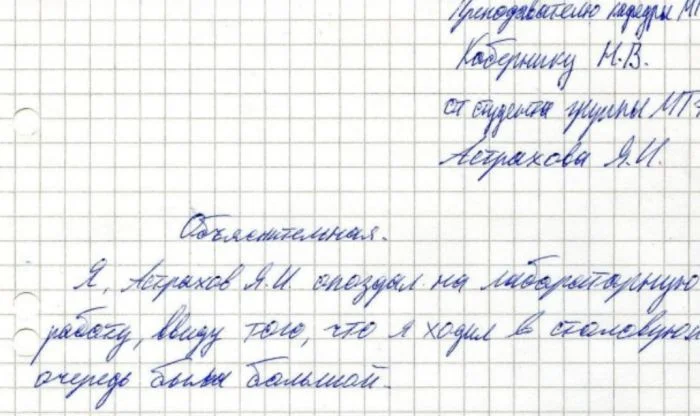 Преподавателю кафедры МТ
Кобернику Н.В.
от студента группы МТ
Астрахова Я.И.
Объяснительная.
Я, Астрахов Я.И опоздал на лабораторную
работу, ввиду того, что я ходил в столовую
очередь была большой.